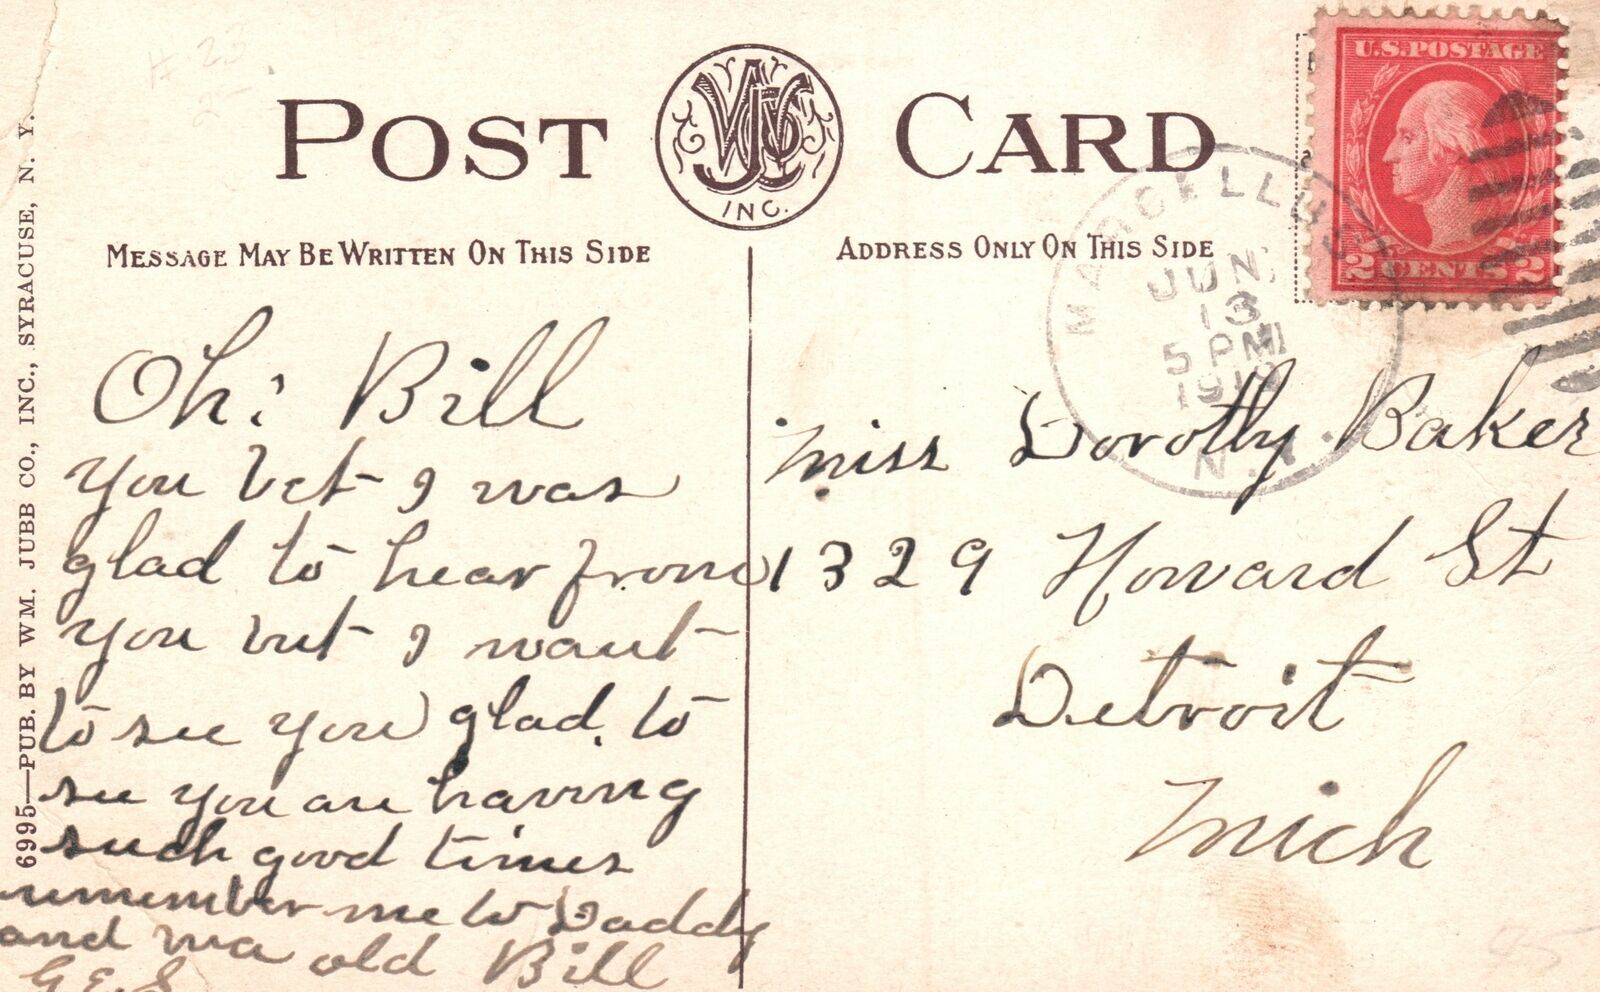 POST CARD
WJC INC.
MESSAGE MAY BE WRITTEN ON THIS SIDE
ADDRESS ONLY ON THIS SIDE
U.S. POSTAGE
2 CENTS 2
MARCELLUS
JUN
13
5 PM
N.Y.
6995—PUB. BY WM. JUBB CO., INC., SYRACUSE, N. Y.
Oh! Bill
you bet I was
glad to hear from
you but I want
to see you glad to
see you are having
such good times
remember me to Daddy
and ma old Bill
G. E. S
Miss Dorothy Baker
1329 Howard St
Detroit
Mich
45